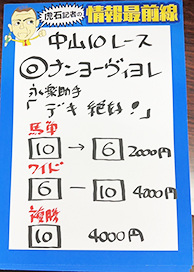 虎石記者の
情報最前線
中山10レース
◎ナンヨーヴィヨレ
助手
「デキ絶好!」
馬単
10 → 6 2000円
ワイド
6 - 10 4000円
複勝
10 4000円